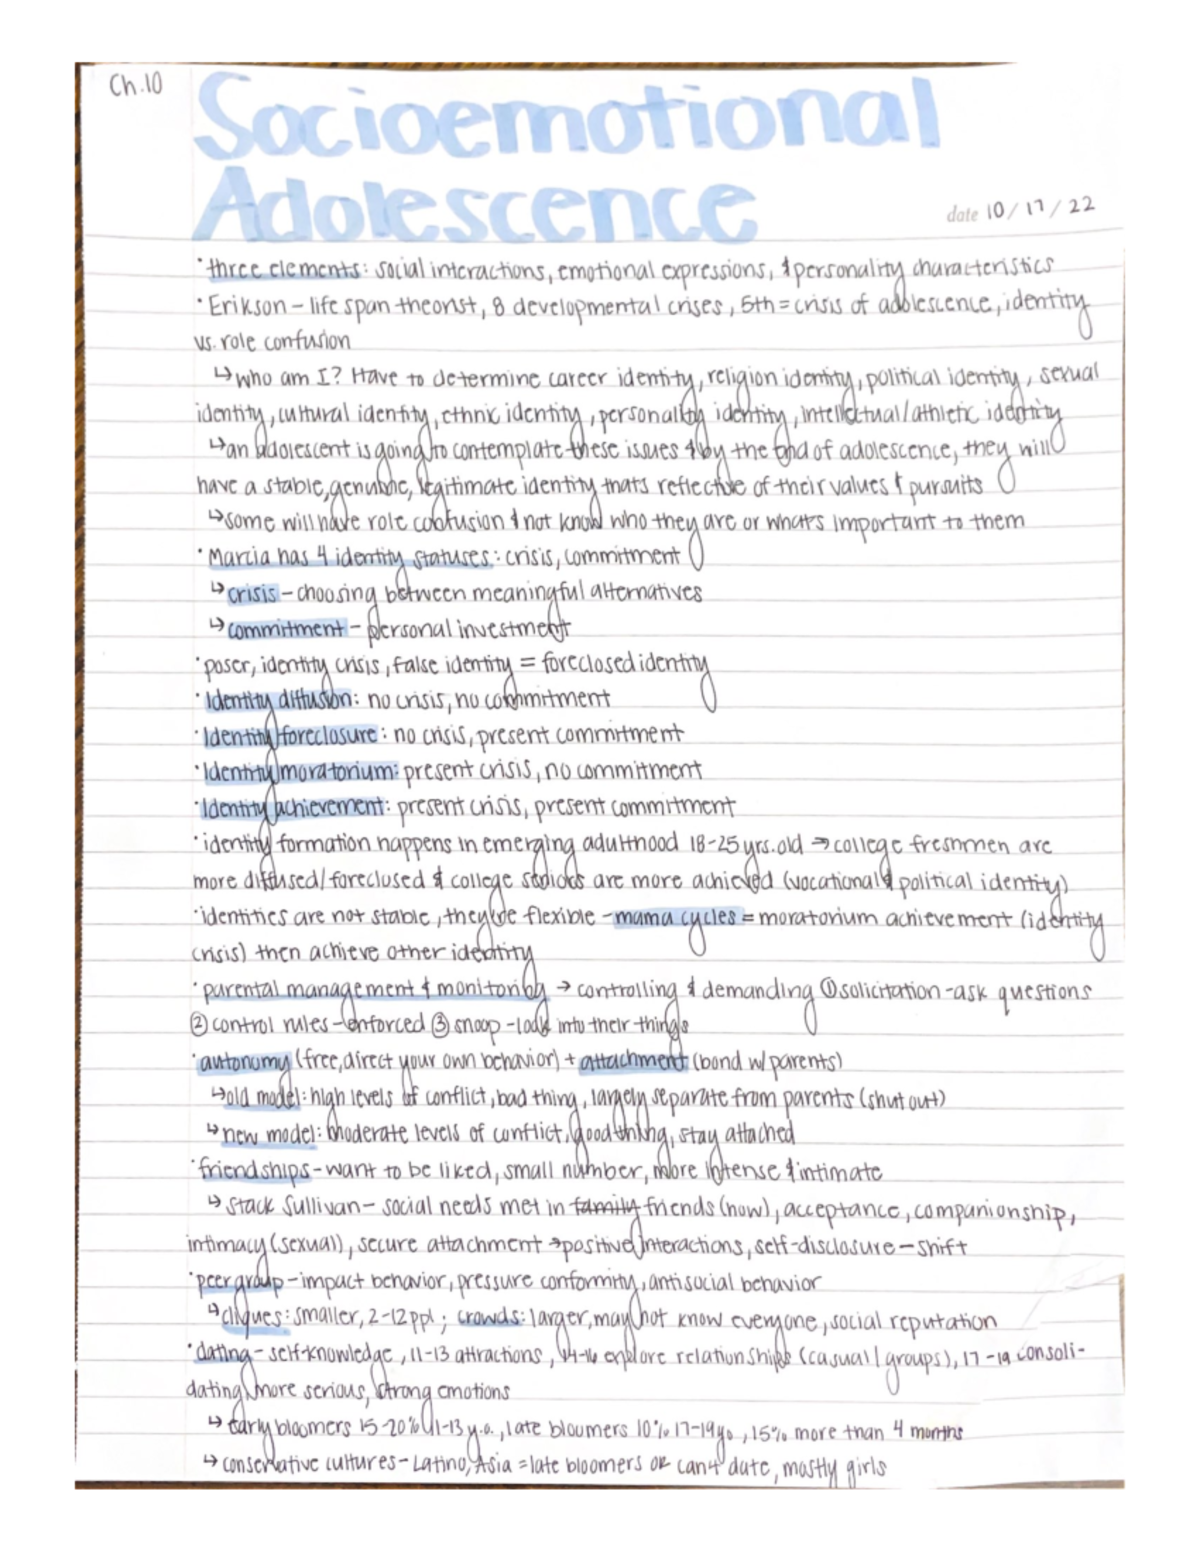 Ch.10
Socioemotional
Adolescence
date 10/17/22
·three elements: social interactions, emotional expressions, & personality characteristics
·Erikson – life span theorist, 8 developmental crises, 5th = crisis of adolescence, identity
vs. role confusion
↳who am I? Have to determine career identity, religion identity, political identity, sexual
identity, cultural identity, ethnic identity, personality identity, intellectual/athletic identity
↳an adolescent is going to contemplate these issues & by the end of adolescence, they will
have a stable, genuine, legitimate identity thats reflective of their values & pursuits
↳some will have role confusion & not know who they are or what's important to them
·Marcia has 4 identity statuses: crisis, commitment
↳crisis – choosing between meaningful alternatives
↳commitment – personal investment
·poser, identity crisis, false identity = foreclosed identity
·Identity diffusion: no crisis, no commitment
·Identity foreclosure: no crisis, present commitment
·Identity moratorium: present crisis, no commitment
·Identity achievement: present crisis, present commitment
·identity formation happens in emerging adulthood 18-25 yrs. old → college freshmen are
more diffused/foreclosed & college seniors are more achieved (vocational & political identity)
·identities are not stable, they're flexible – mama cycles = moratorium achievement (identity
crisis) then achieve other identity
·parental management & monitoring → controlling & demanding ① solicitation - ask questions
② control rules – enforced ③ snoop – look into their things
·autonomy (free, direct your own behavior) + attachment (bond w/ parents)
↳old model: high levels of conflict, bad thing, largely separate from parents (shut out)
↳new model: moderate levels of conflict, good thing, stay attached
·friendships – want to be liked, small number, more intense & intimate
↳Stack Sullivan – social needs met in family friends (now), acceptance, companionship,
intimacy (sexual), secure attachment → positive interactions, self-disclosure – shift
·peer group – impact behavior, pressure conformity, antisocial behavior
↳cliques: smaller, 2-12 ppl; crowds: larger, may not know everyone, social reputation
·dating – self-knowledge, 11-13 attractions, 14-16 explore relationships (casual/groups), 17-19 consoli-
dating, more serious, strong emotions
↳Early bloomers 15-20% 11-13 y.o., late bloomers 10% 17-19 yo, 15% more than 4 months
↳conservative cultures – Latino, Asia = late bloomers or can't date, mostly girls